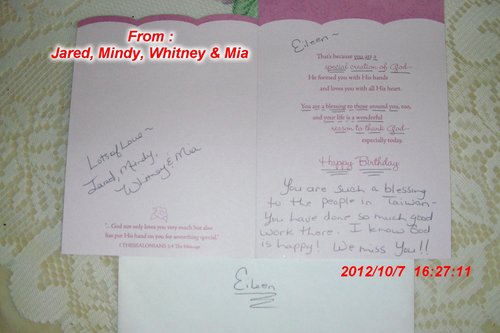 From :
Jared, Mindy, Whitney & Mia
Lots of Love~
Jared, Mindy,
Whitney & Mia
"... God not only loves you very much but also
has put His hand on you for something special."
1 THESSALONIANS 1:4 The Message
Eileen~
That's because you are a
special creation of God–
He formed you with His hands
and loves you with all His heart.
You are a blessing to those around you, too,
and your life is a wonderful
reason to thank God–
especially today.
Happy Birthday
You are such a blessing
to the people in Taiwan–
You have done so much good
work there. I know God
is happy! We miss You!!
Eileen
2012/10/7 16:27:11